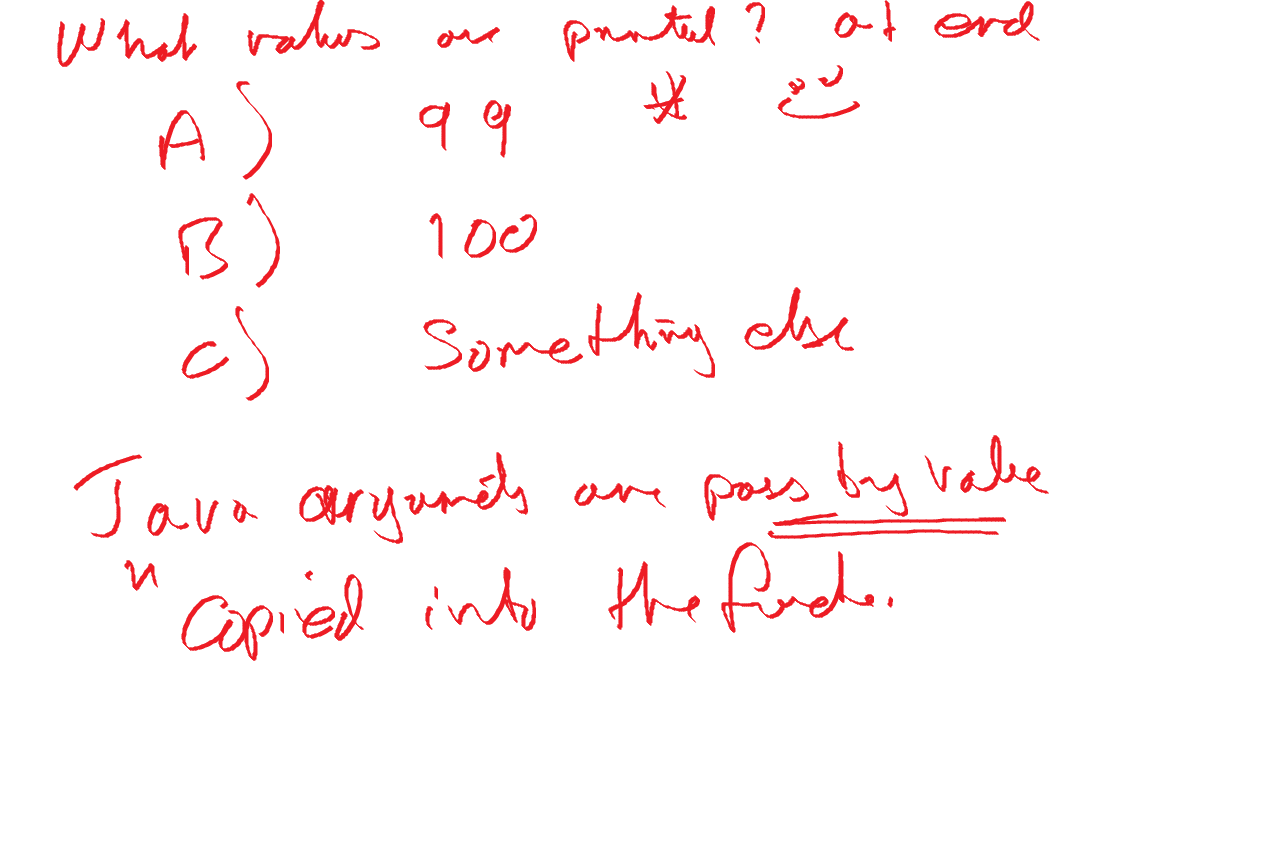 What values are printed? at end
A) 99
B) 100
C) Something else
Java arguments are pass by value
" Copied into the